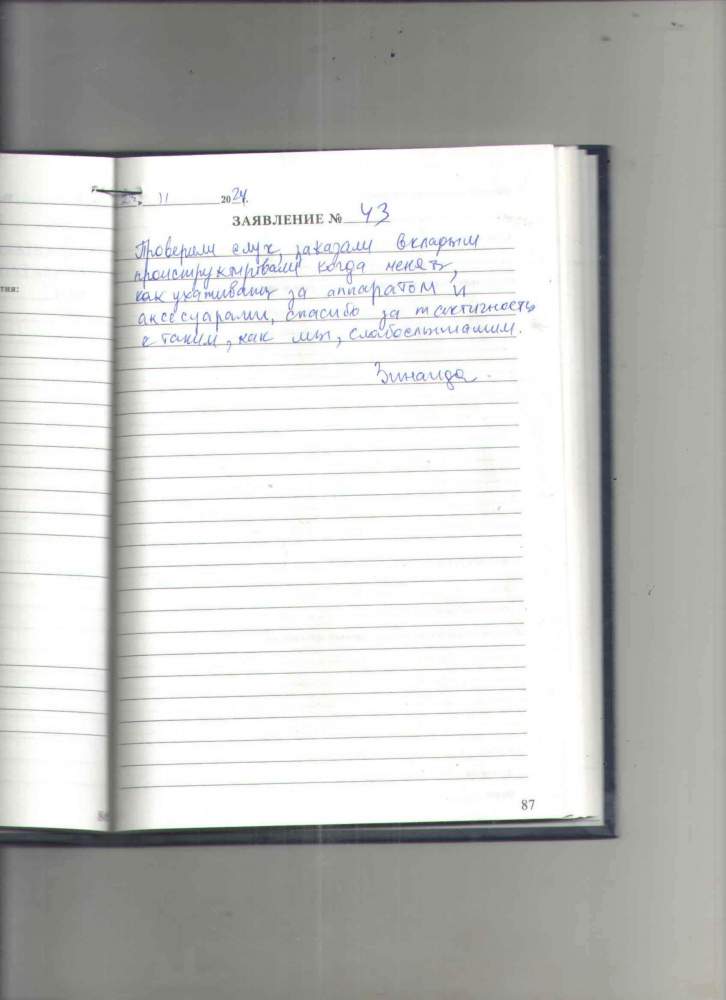 23. 11 2024.
ЗАЯВЛЕНИЕ № 43
Проверили слух, заказали вкладыш
проиструктировали когда менять,
как ухаживать за аппаратом и
аксесуарами, спасибо за тактичность
к таким, как мы, слабослышащим.
Зинаида.
тия:
86
87